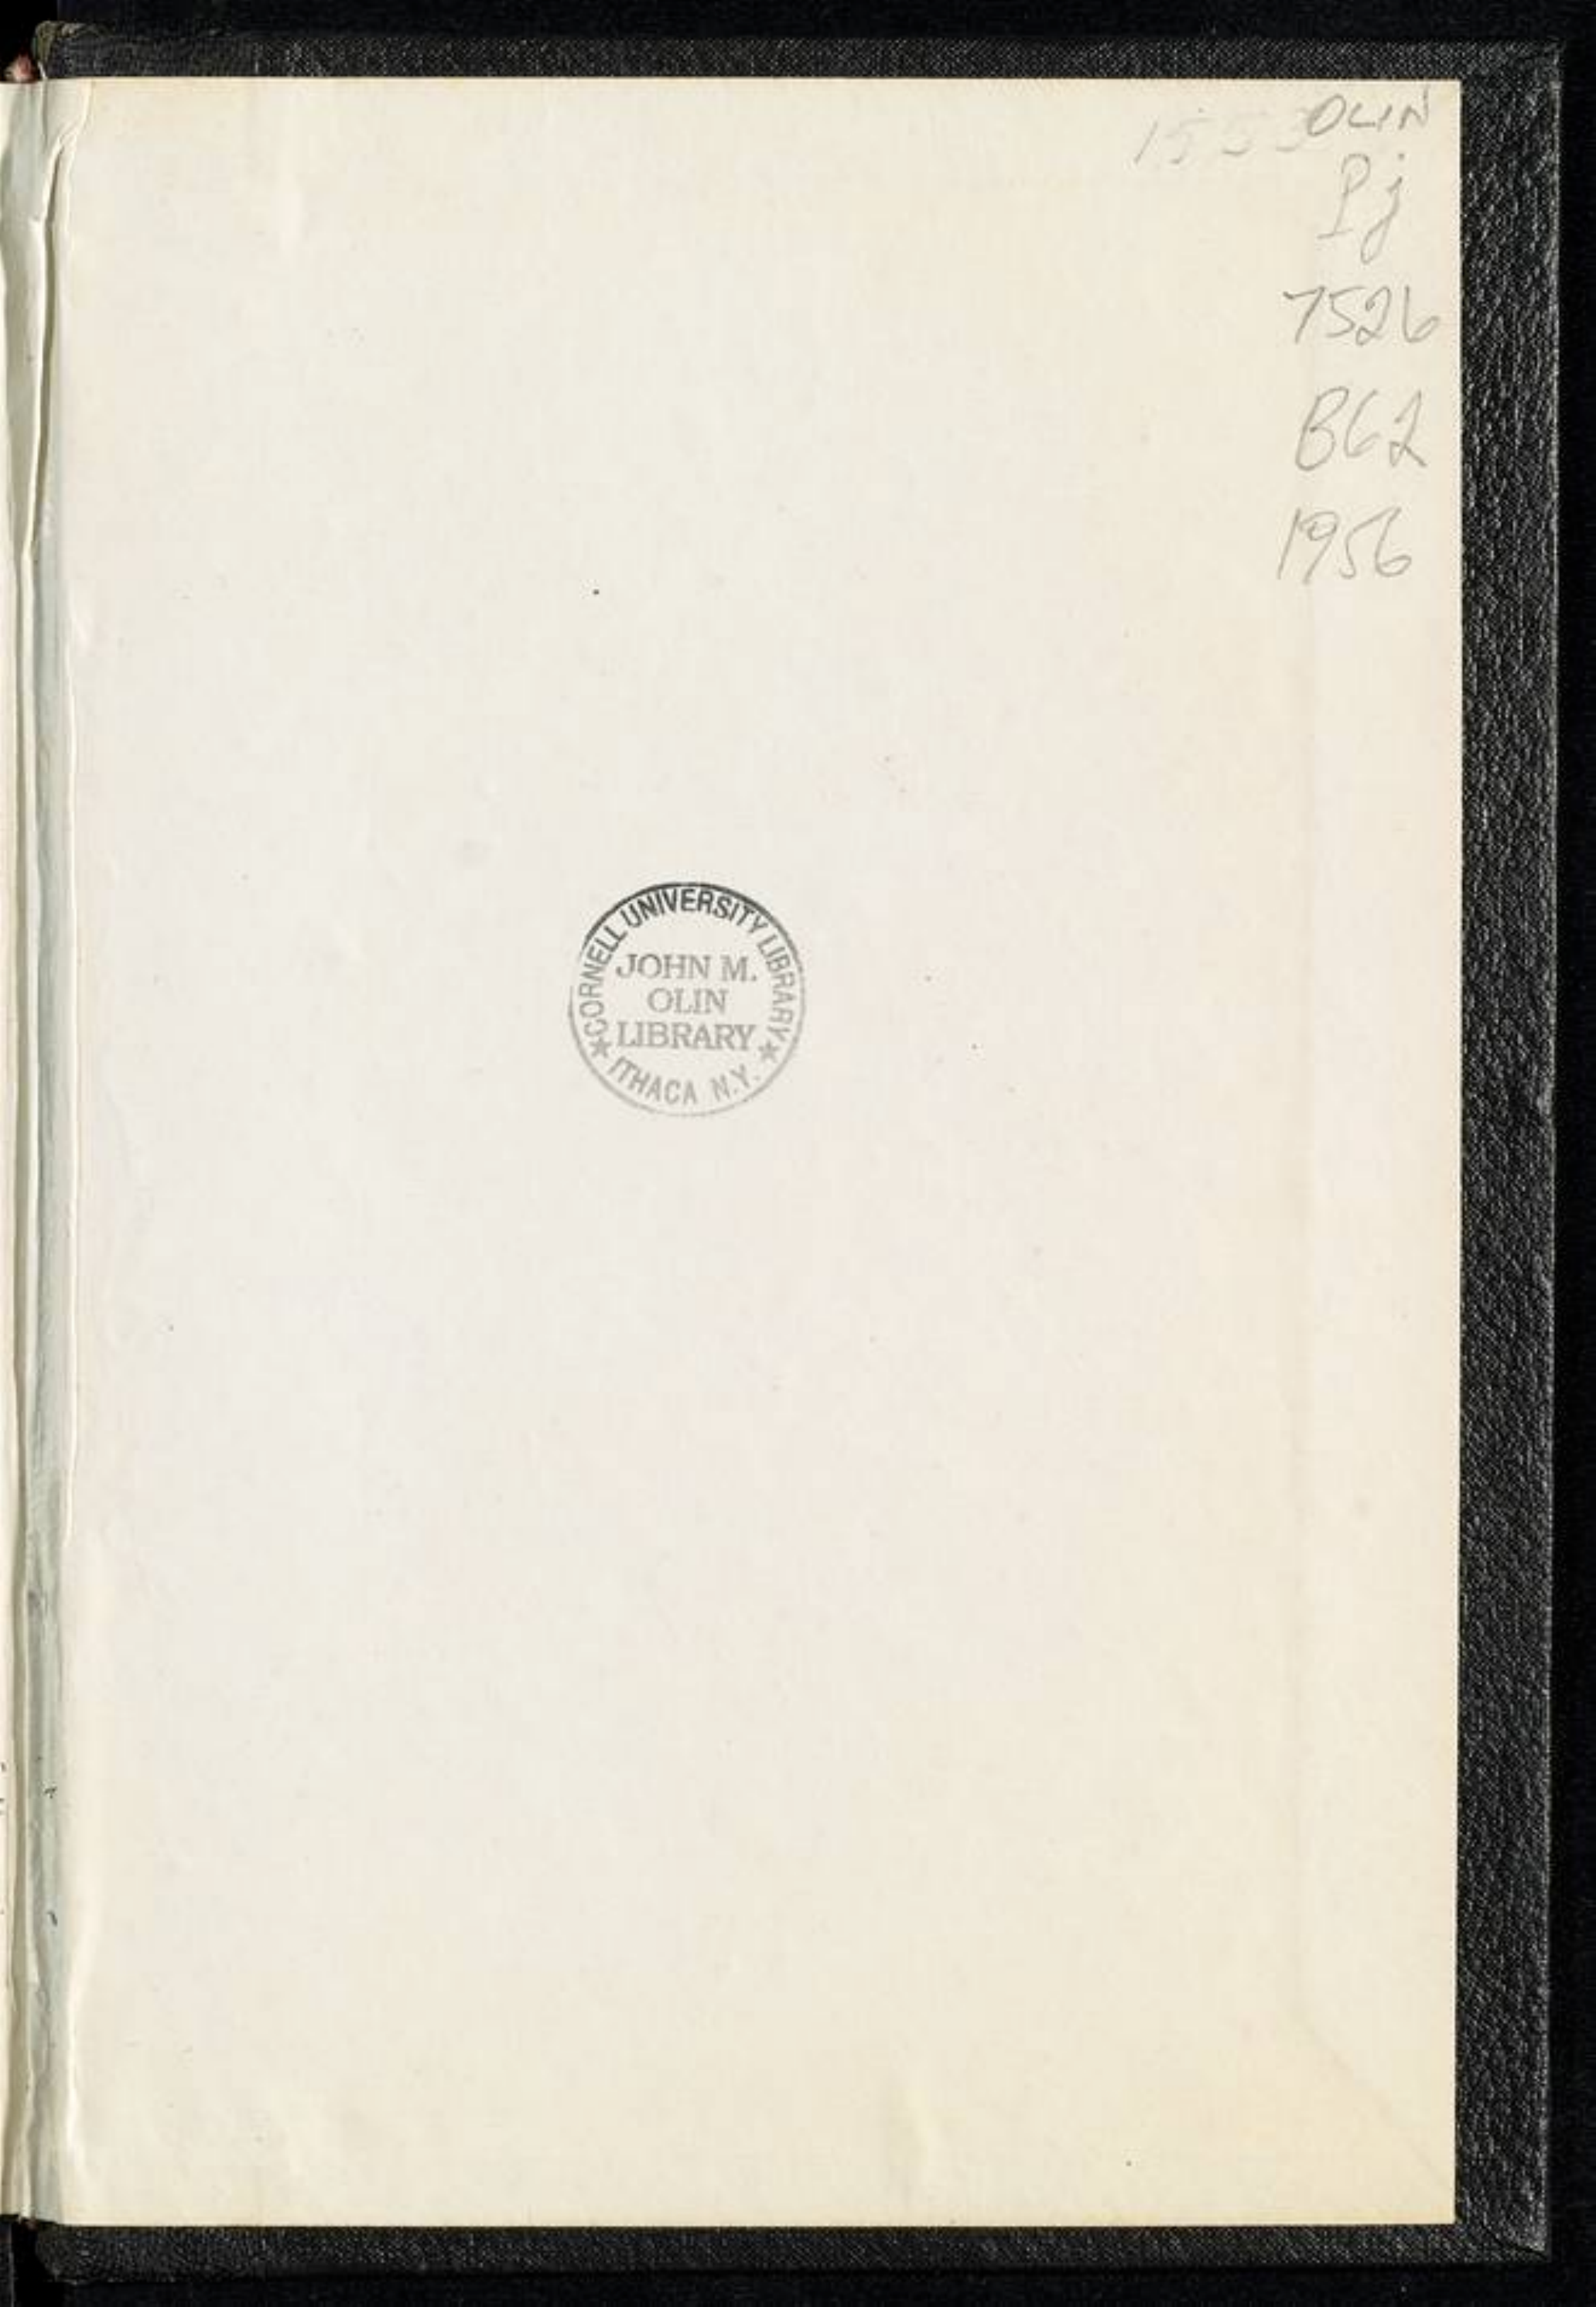 OLIN
Pj
7526
B62
1956
CORNELL UNIVERSITY LIBRARY
JOHN M.
OLIN
LIBRARY
ITHACA N.Y.